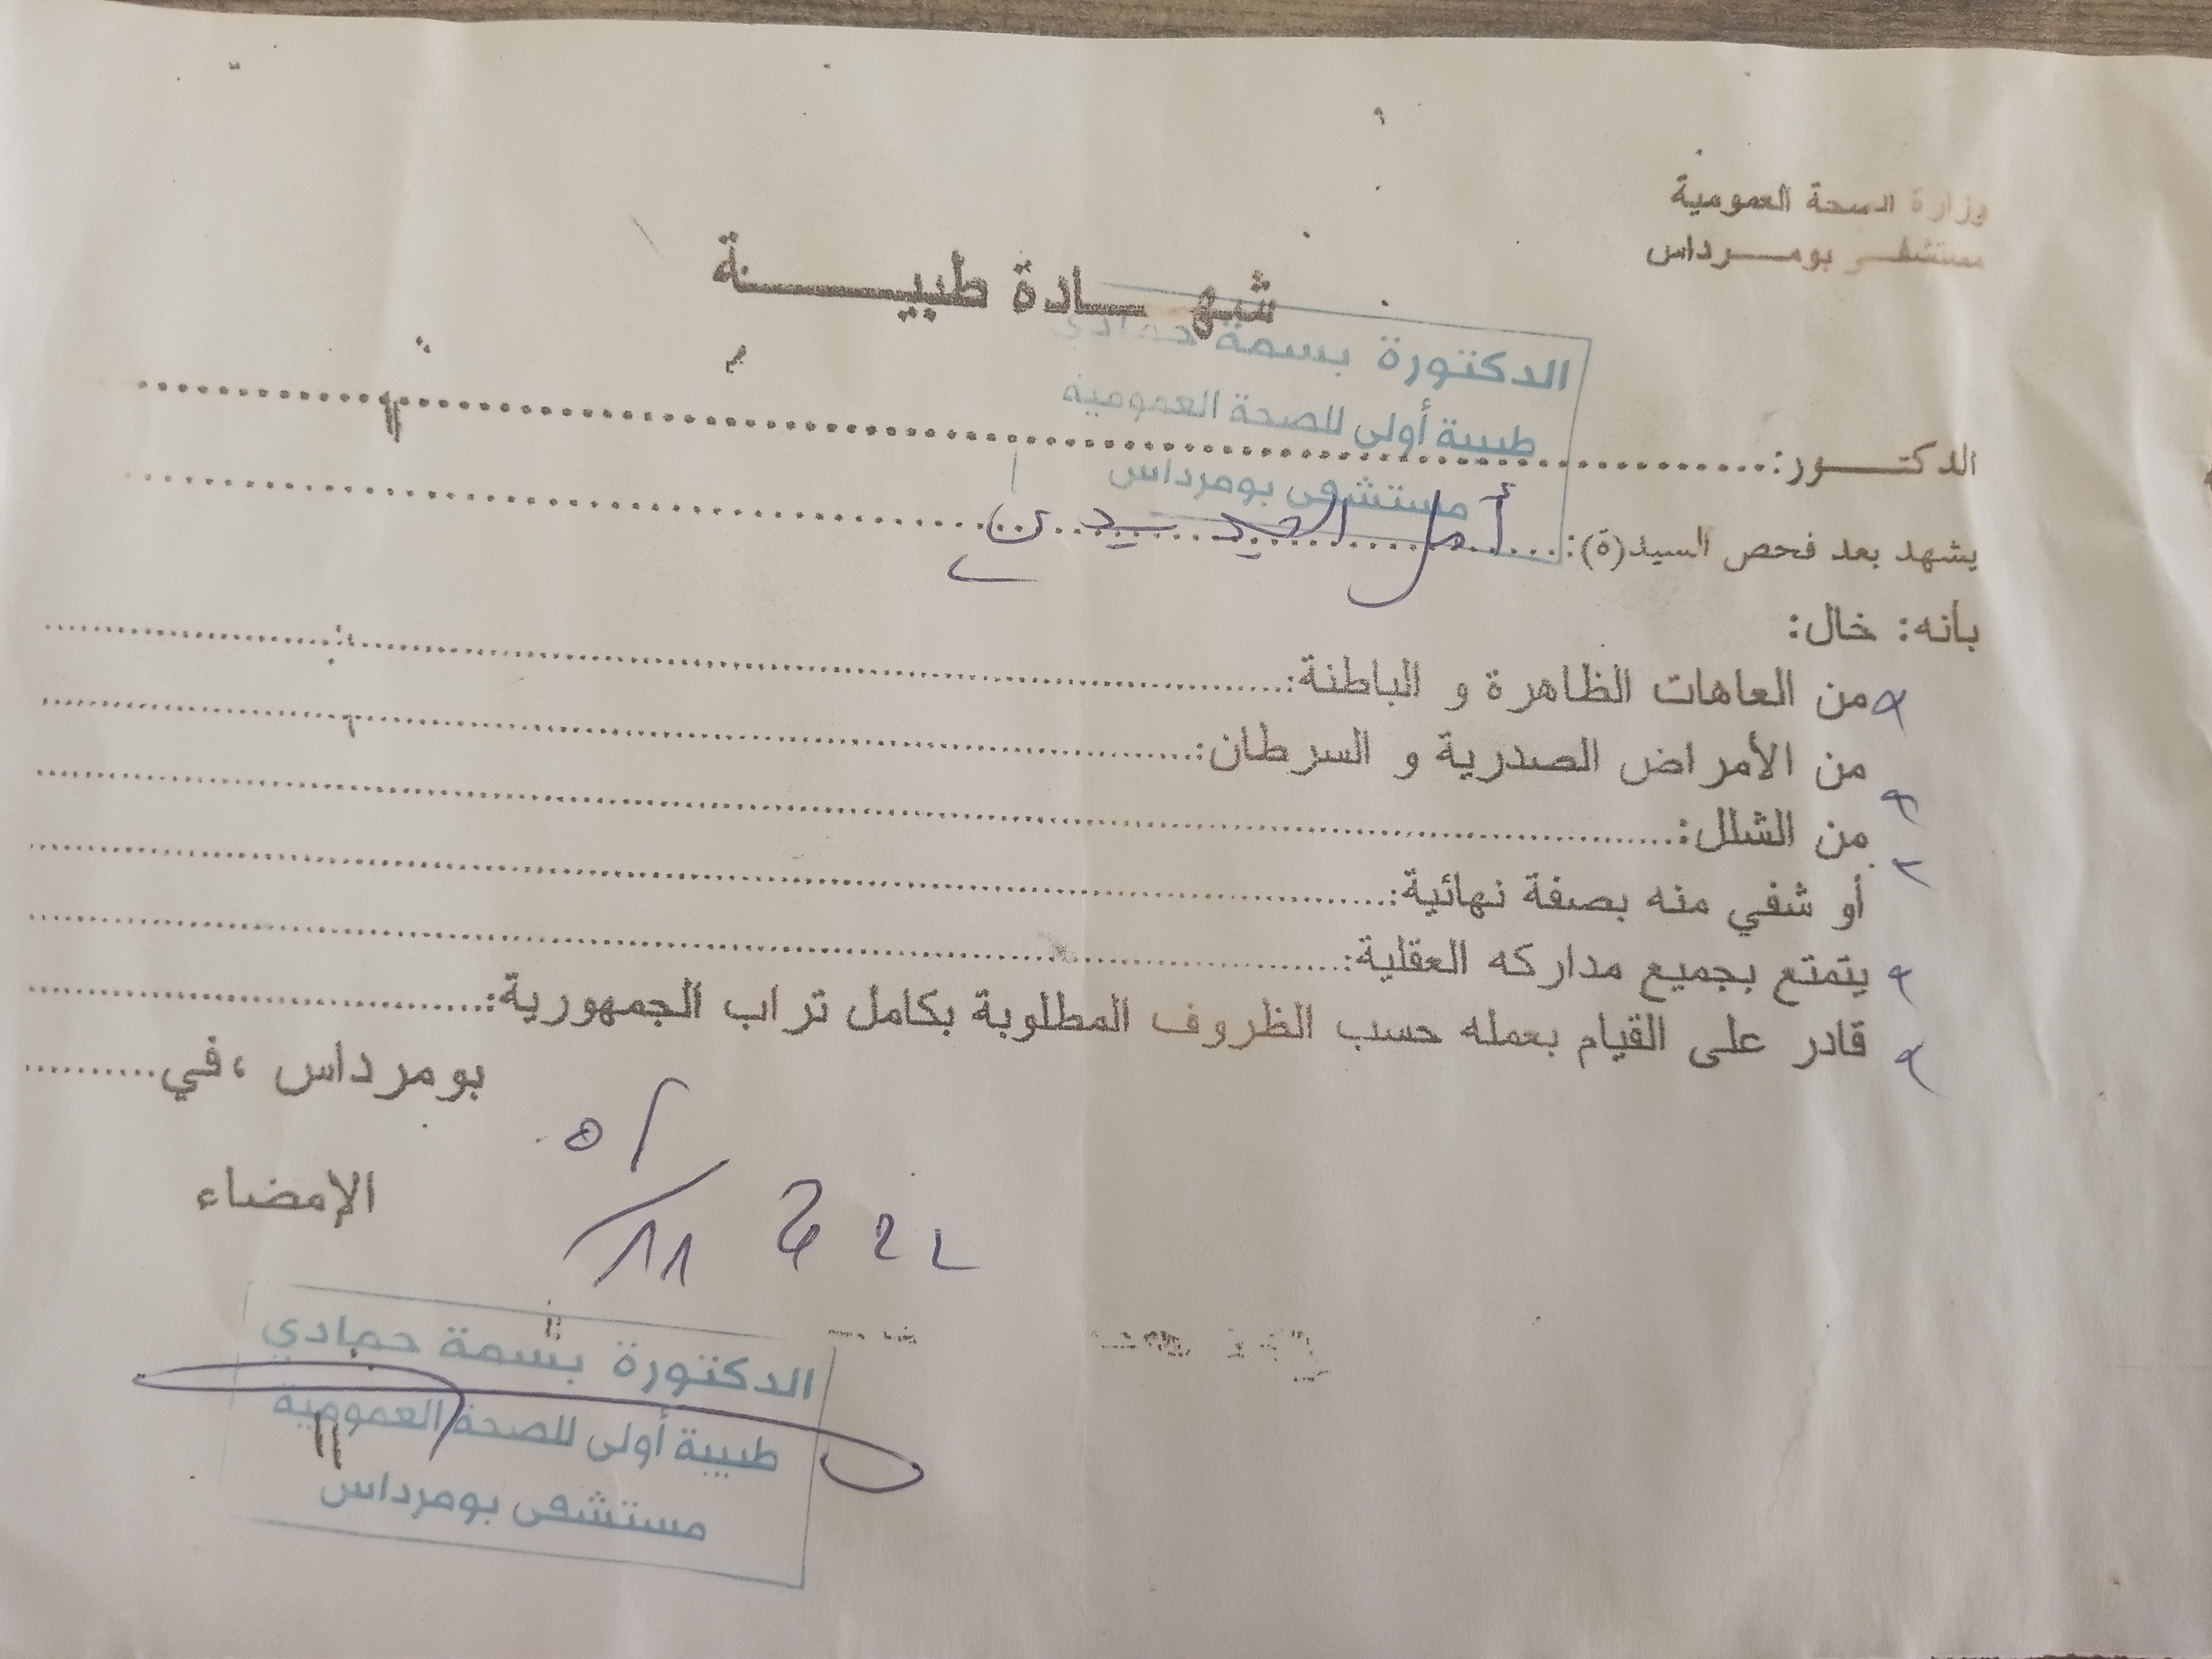 وزارة الصحة العمومية
مستشفى بومرداس
شهادة طبية
الدكتورة بسمة حمادي
طبيبة أولى للصحة العمومية
مستشفى بومرداس
الدكتور:
يشهد بعد فحص السيد(ة): أمل
بأنه: خال:
من العاهات الظاهرة و الباطنة:
من الأمراض الصدرية و السرطان:
من الشلل:
أو شفي منه بصفة نهائية:
يتمتع بجميع مداركه العقلية:
قادر على القيام بعمله حسب الظروف المطلوبة بكامل تراب الجمهورية:
بومرداس ،في
الإمضاء
الدكتورة بسمة حمادي
طبيبة أولى للصحة العمومية
مستشفى بومرداس